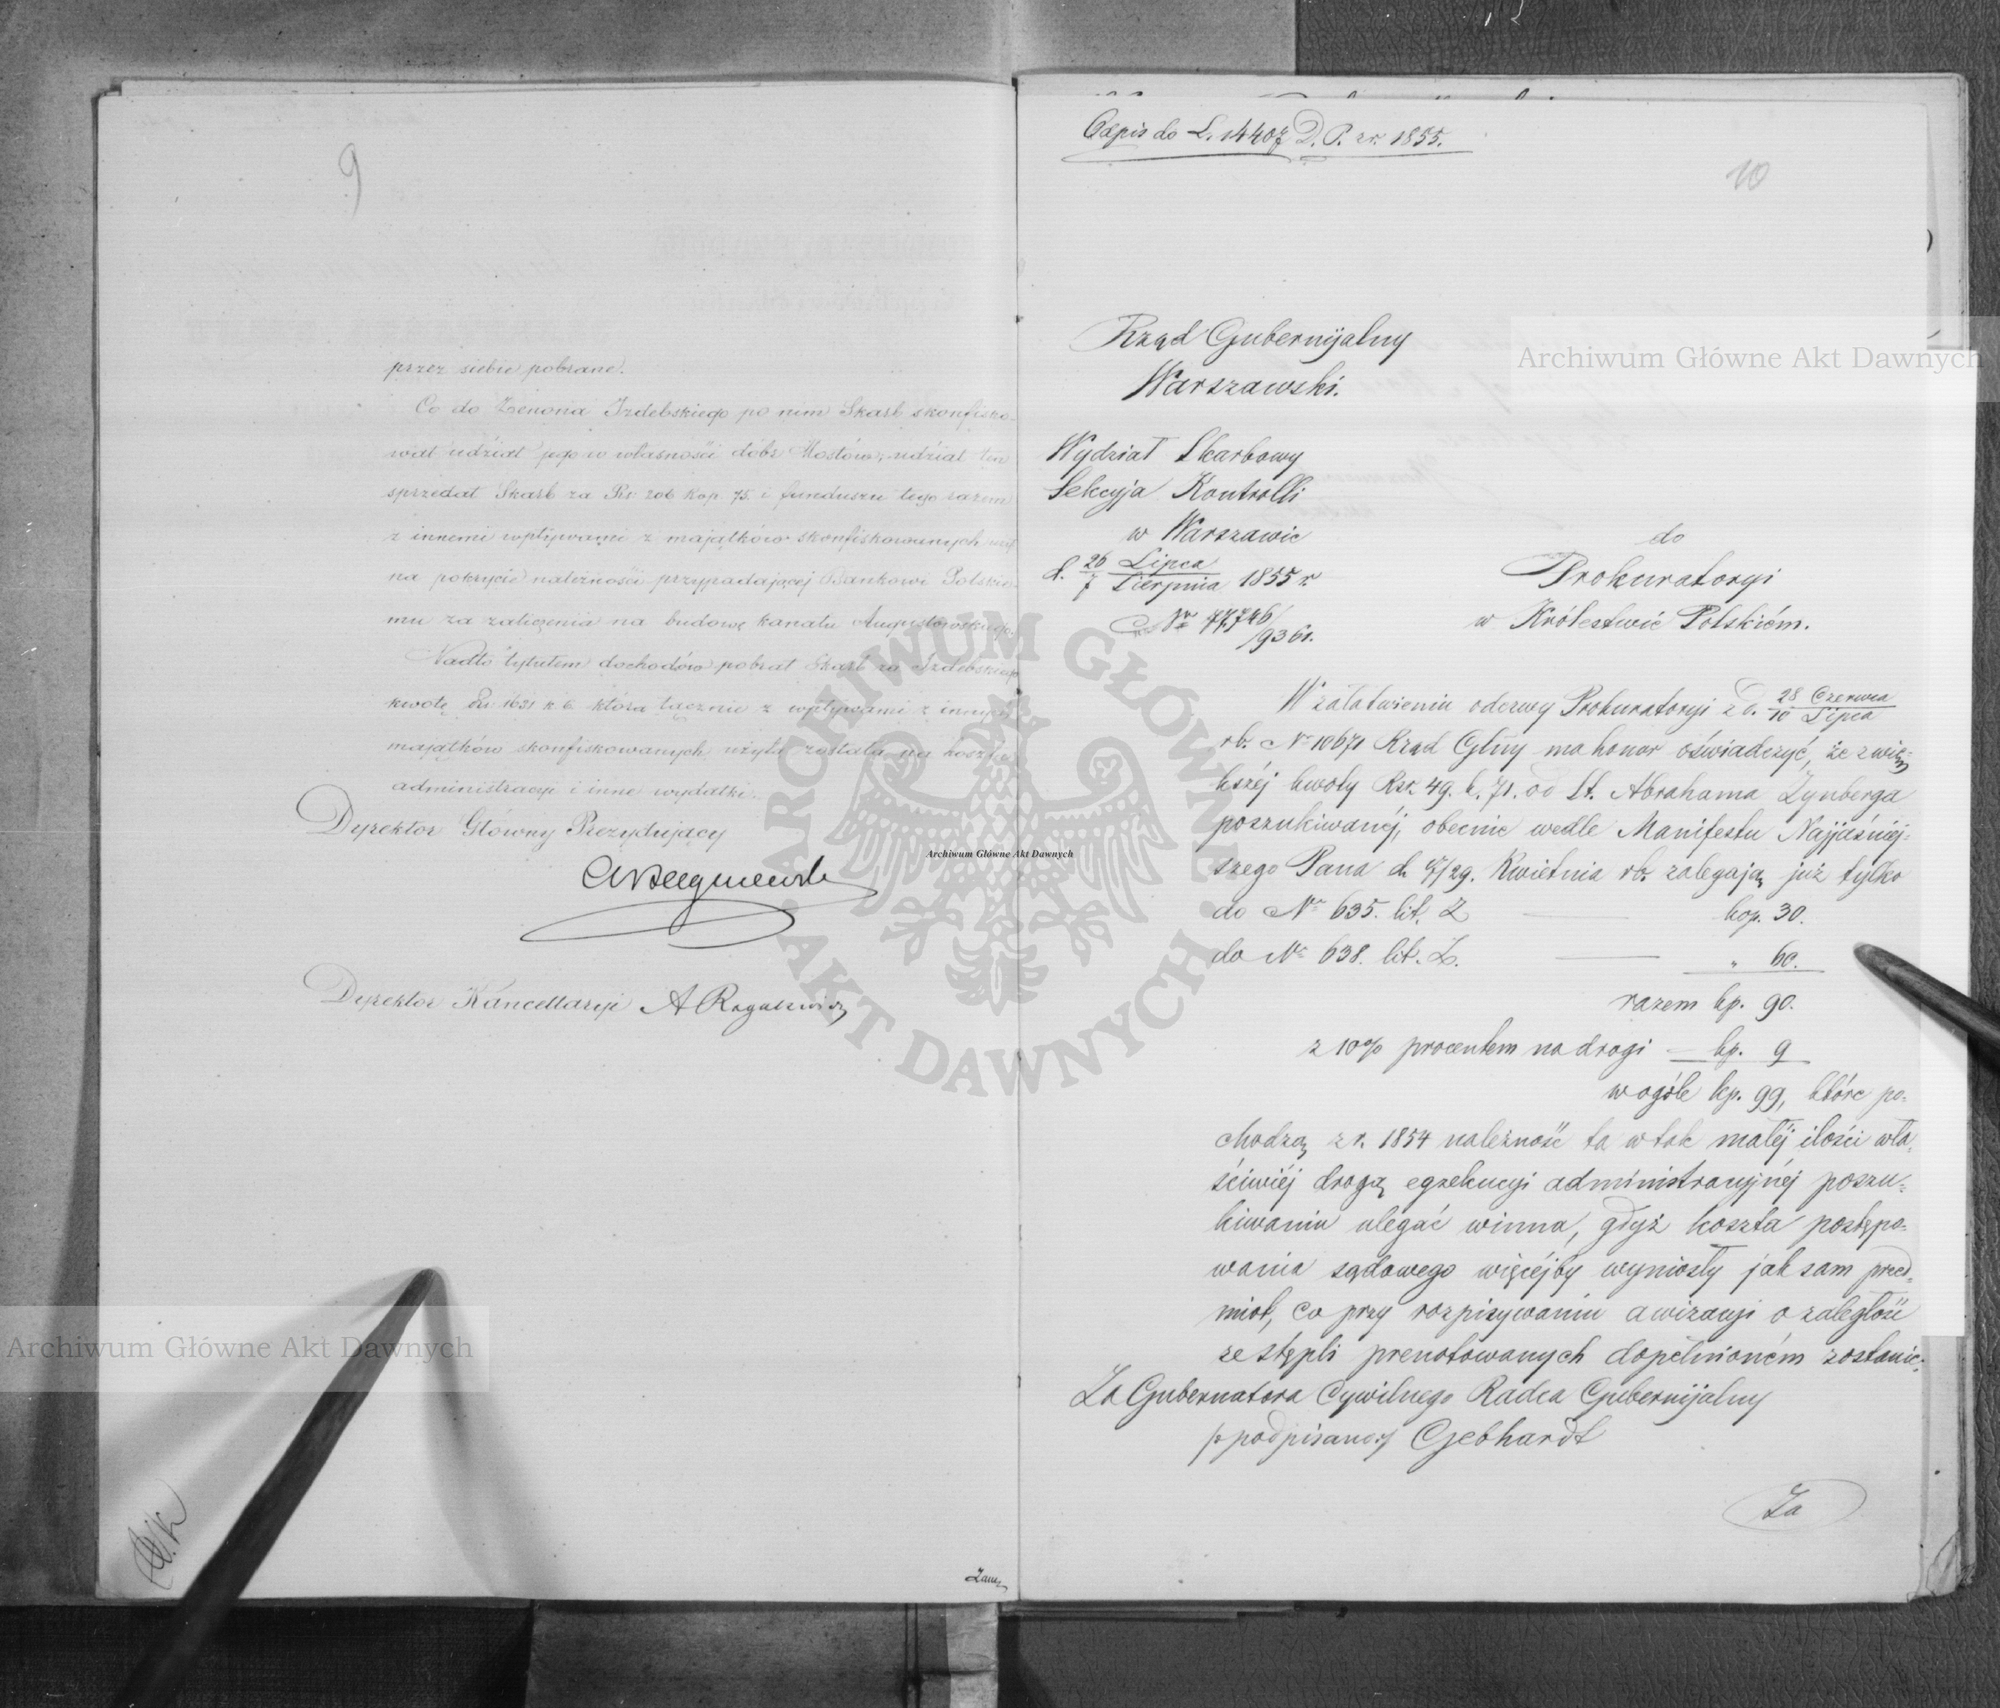 9
przez siebie pobrane.
Co do Zenona Izdebskiego po nim Skarb skonfisko-
wał udział jego w własności dóbr Mostów; udział ten
sprzedał Skarb za Rs. 206 kop. 75. i funduszu tego razem
z innemi wpływami z majątków skonfiskowanych użył
na pokrycie należności przypadającej Bankowi Polskie-
mu za zaliczenia na budowę kanału Augustowskiego.
Nadto tytułem dochodów pobrał Skarb za Izdebskiego
kwotę Rs. 1631 k 6. która łącznie z wpływami z innych
majątków skonfiskowanych użyta została na koszta
administracyi i inne wydatki.
Dyrektor Główny Prezydujący
Dyrektor Kancellaryi A Rogalewicz
Odpis do L. 14407 D. P. z r. 1855.
10
Rząd Gubernijalny
Warszawski.
Wydział Skarbowy
Sekcyja Kontrolli
w Warszawie
d. 26 Lipca / 7 Sierpnia 1855 r.
Nr 77,746/9361.
do
Prokuratoryi
w Królestwie Polskiém.
W załatwieniu odezwy Prokuratoryi z d. 28 Czerwca / 10 Lipca
rb. Nr 10671 Rząd Gbny ma honor oświadczyć, że z wię-
kszéj kwoty Rsr. 49. k. 71. od St. Abrahama Zynberga
poszukiwanéj, obecnie wedle Manifestu Najjaśniej-
szego Pana d. 17/29. Kwietnia rb. zalegają już tylko
do Nr 635. lit. Z — kop. 30.
do Nr 638. lit. Z. — " 60.
razem kp. 90.
z 10% procentem na drogi — kp. 9
w ogóle kp. 99, które po-
chodzą z r. 1854 należność ta w tak małéj ilości wła-
ściwiéj drogą egzekucyi administracyjnéj poszu-
kiwaniu ulegać winna, gdyż koszta postępo-
wania sądowego więcéjby wyniosły jak sam przed-
miot, co przy rozpisywaniu awizacyi o zaległość
ze stępli prenotowanych dopełnioném zostanie.
Za Gubernatora Cywilnego Radca Gubernijalny
/: podpisano :/ Gebhardt
Za
Archiwum Główne Akt Dawnych
Archiwum Główne Akt Dawnych
Archiwum Główne Akt Dawnych
ARCHIWUM GŁÓWNE
AKT DAWNYCH